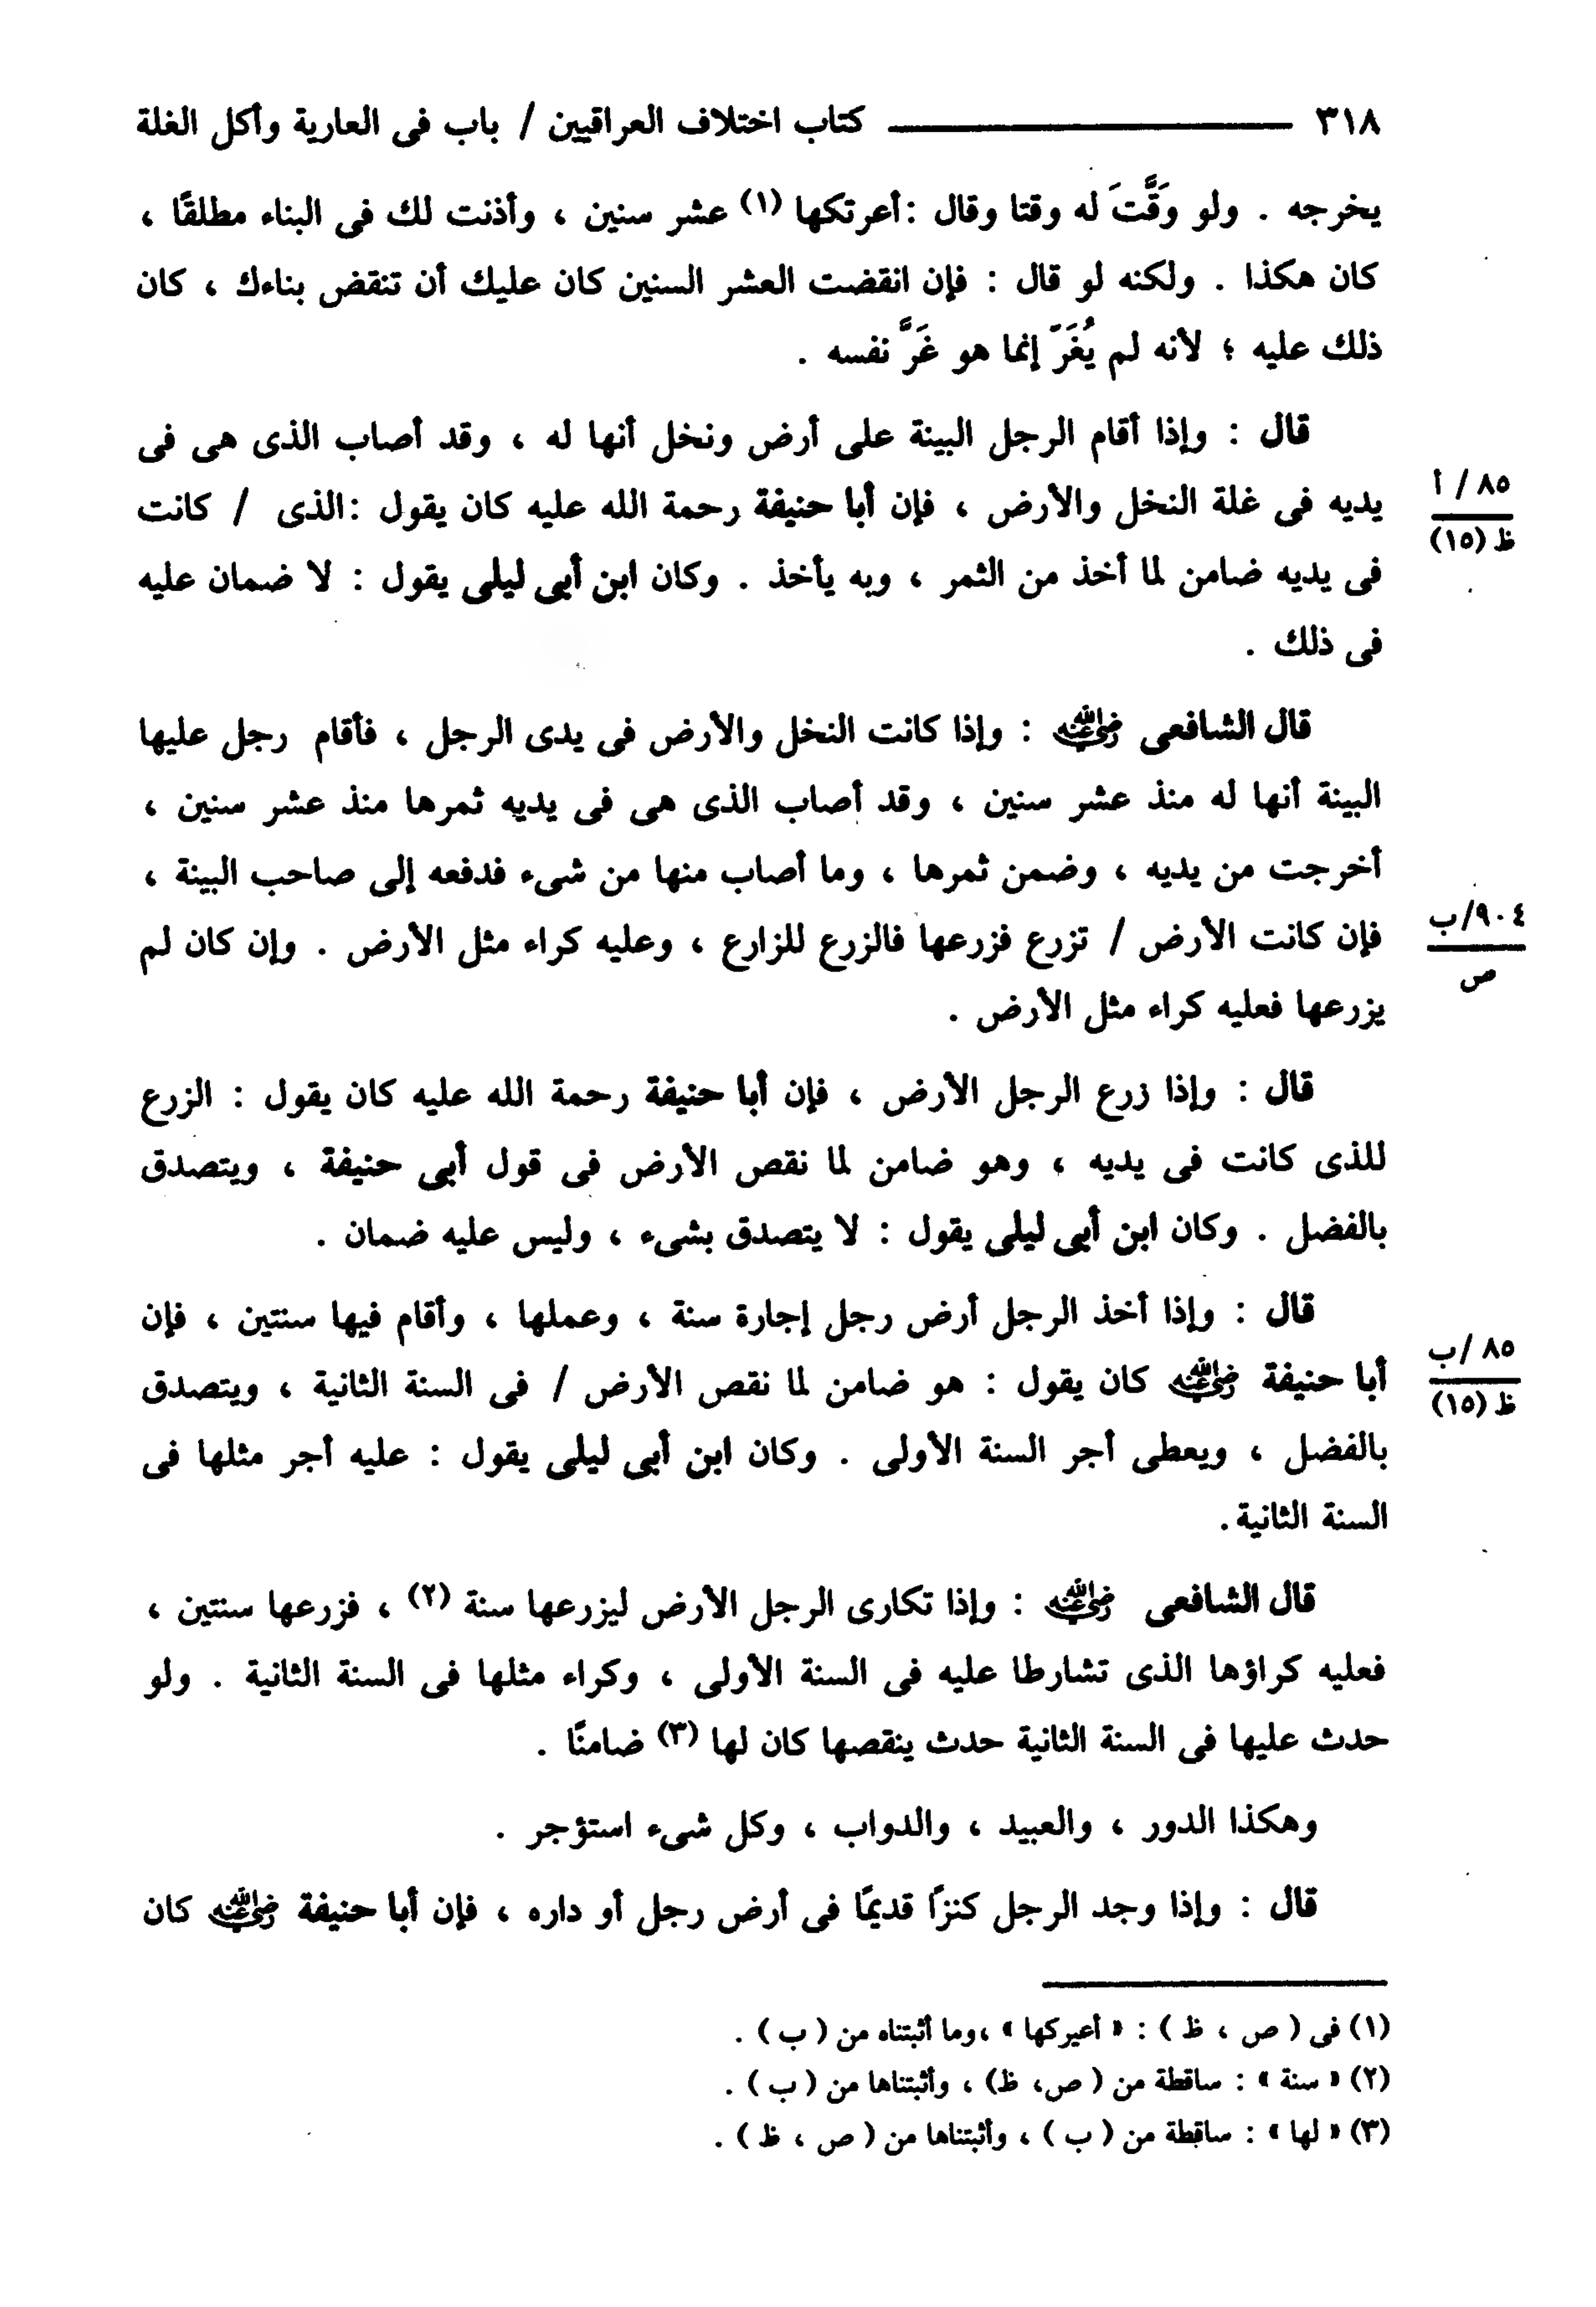 ٣١٨ ــــــــــــــــ كتاب اختلاف العراقيين / باب فى العارية وأكل الغلة
يخرجه . ولو وَقَّتَ له وقتا وقال :أعرتكها (١) عشر سنين ، وأذنت لك فى البناء مطلقًا ،
كان هكذا . ولكنه لو قال : فإن انقضت العشر السنين كان عليك أن تنقض بناءك ، كان
ذلك عليه ؛ لأنه لم يُغَرّ إنما هو غَرَّ نفسه .
قال : وإذا أقام الرجل البينة على أرض ونخل أنها له ، وقد أصاب الذى هى فى
يديه فى غلة النخل والأرض ، فإن أبا حنيفة رحمة الله عليه كان يقول :الذى / كانت
٨٥ / أ
ظ (١٥)
فى يديه ضامن لما أخذ من الثمر ، وبه يأخذ . وكان ابن أبى ليلى يقول : لا ضمان عليه
فى ذلك .
قال الشافعى رضي الله عنه : وإذا كانت النخل والأرض فى يدى الرجل ، فأقام رجل عليها
البينة أنها له منذ عشر سنين ، وقد أصاب الذى هى فى يديه ثمرها منذ عشر سنين ،
أخرجت من يديه ، وضمن ثمرها ، وما أصاب منها من شىء فدفعه إلى صاحب البينة ،
فإن كانت الأرض / تزرع فزرعها فالزرع للزارع ، وعليه كراء مثل الأرض . وإن كان لم
٩٠٤/ب
ص
يزرعها فعليه كراء مثل الأرض .
قال : وإذا زرع الرجل الأرض ، فإن أبا حنيفة رحمة الله عليه كان يقول : الزرع
للذى كانت فى يديه ، وهو ضامن لما نقص الأرض فى قول أبى حنيفة ، ويتصدق
بالفضل . وكان ابن أبى ليلى يقول : لا يتصدق بشىء ، وليس عليه ضمان .
قال : وإذا أخذ الرجل أرض رجل إجارة سنة ، وعملها ، وأقام فيها سنتين ، فإن
أبا حنيفة رضي الله عنه كان يقول : هو ضامن لما نقص الأرض / فى السنة الثانية ، ويتصدق
٨٥ /ب
ظ (١٥)
بالفضل ، ويعطى أجر السنة الأولى . وكان ابن أبى ليلى يقول : عليه أجر مثلها فى
السنة الثانية.
قال الشافعى رضي الله عنه : وإذا تكارى الرجل الأرض ليزرعها سنة (٢) ، فزرعها سنتين ،
فعليه كراؤها الذى تشارطا عليه فى السنة الأولى ، وكراء مثلها فى السنة الثانية . ولو
حدث عليها فى السنة الثانية حدث ينقصها كان لها (٣) ضامنًا .
وهكذا الدور ، والعبيد ، والدواب ، وكل شىء استؤجر .
قال : وإذا وجد الرجل كنزًا قديمًا فى أرض رجل أو داره ، فإن أبا حنيفة رضي الله عنه كان
(١) فى ( ص ، ظ ) : « أعيركها » ،وما أثبتناه من ( ب ) .
(٢) « سنة » : ساقطة من ( ص، ظ) ، وأثبتناها من ( ب ) .
(٣) « لها » : ساقطة من ( ب ) ، وأثبتناها من ( ص ، ظ ) .